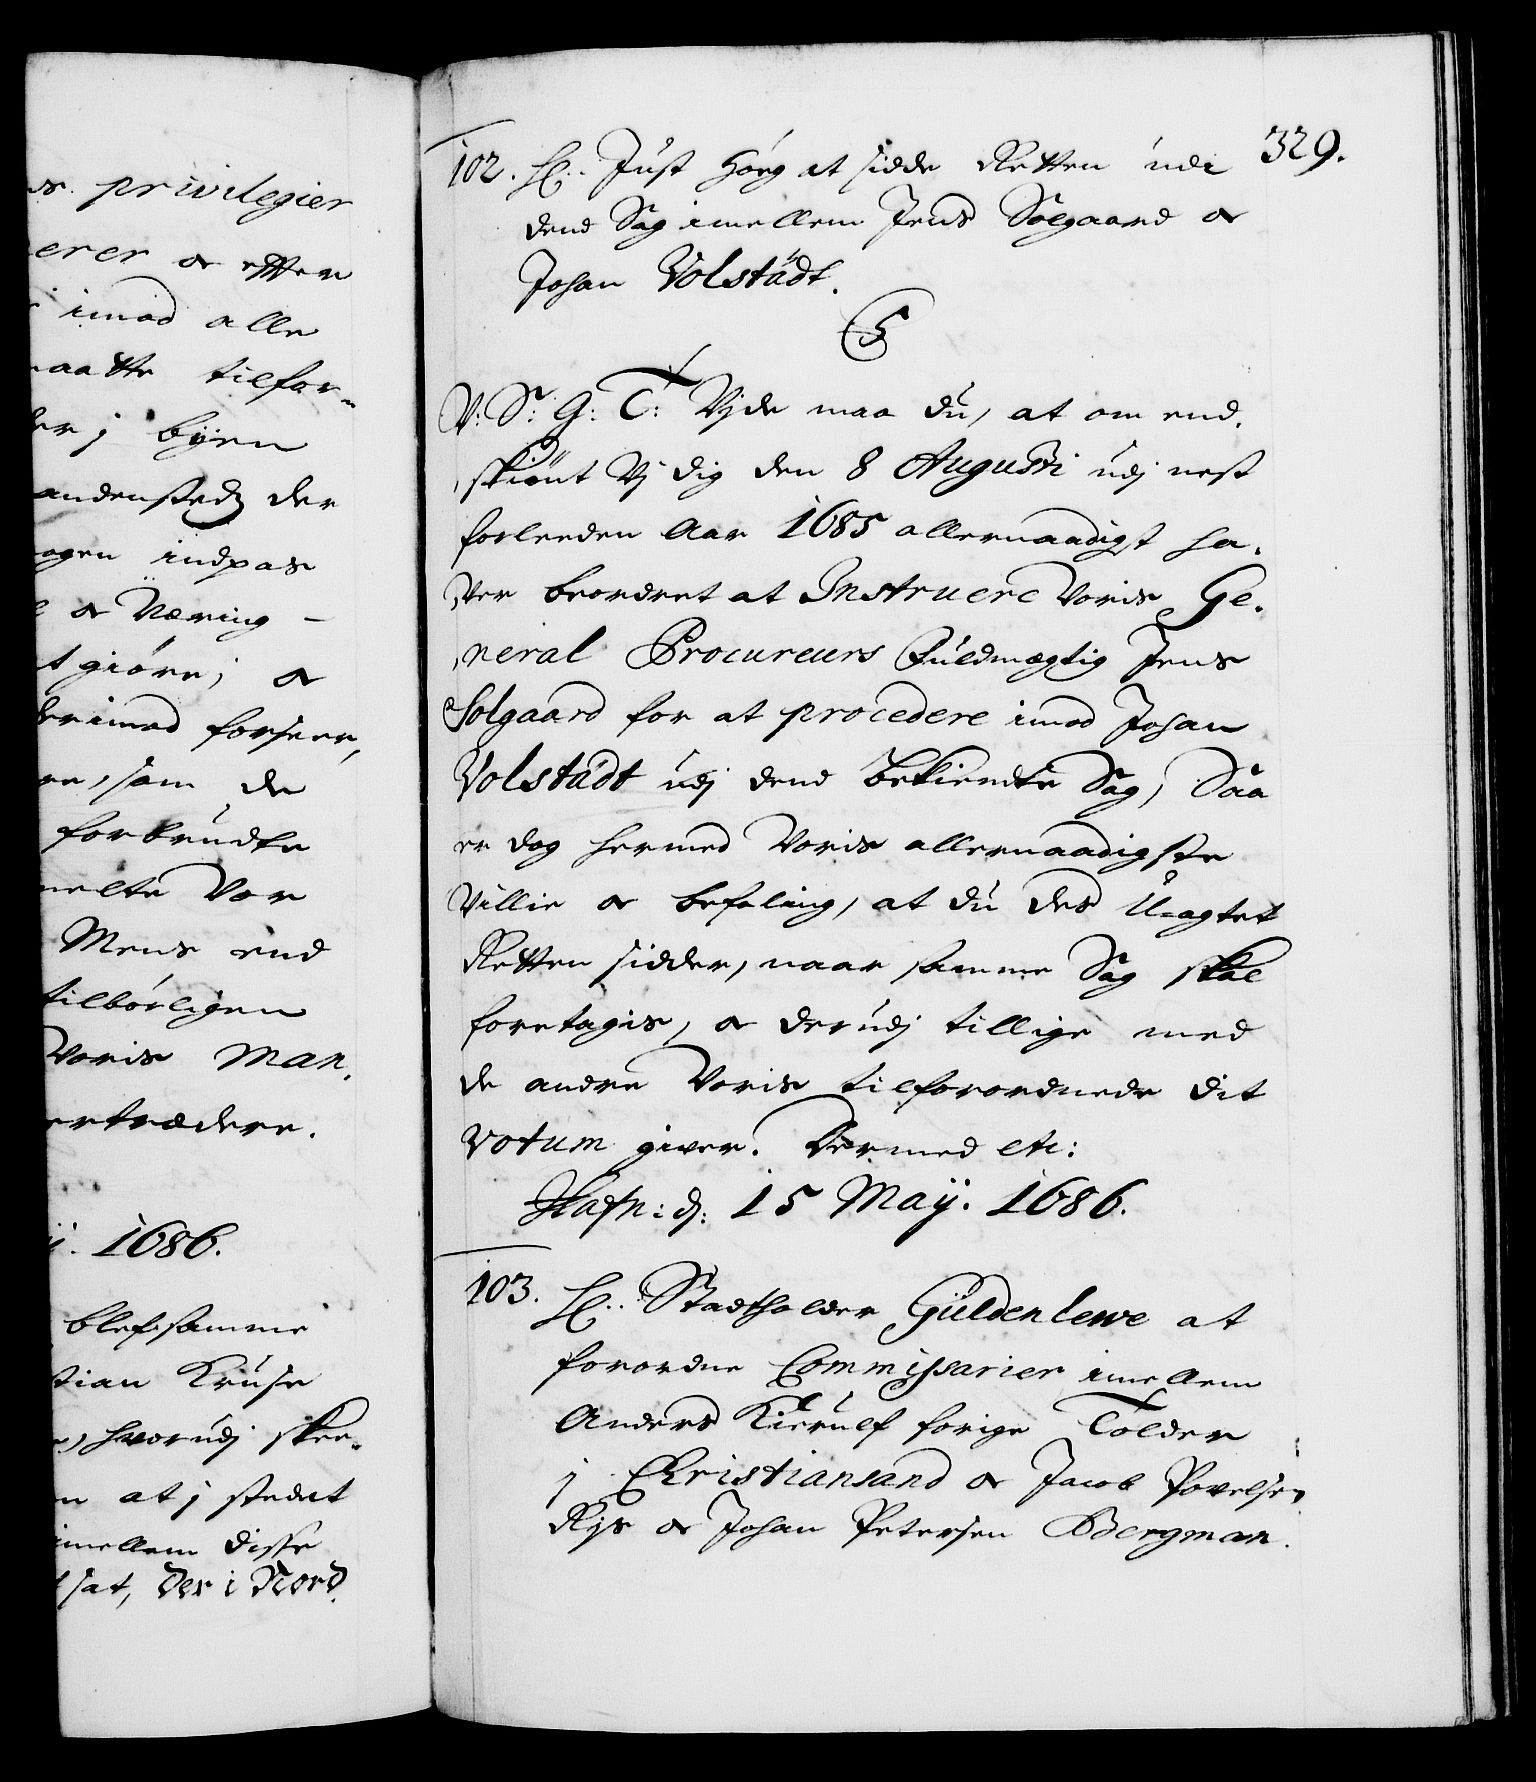 privilegier
erer og efter
imod alle
maatte tilfor-
der j byen
andensteds der
ogen indpas
og Næring -
t giöre; og
derimod forseer,
re, som de
forbrudte
melte Vor
Mens end
tilbörligen
Voris Man,
ertrædere.
1686.
blef samme
stian Kruse
hvorudj skee-
n at j stedet
imellem disse
sat, der i Nord
329.
102. H: Just Höeg at sidde Retten udi
dend Sag imellem Jens Solgaard og
Johan Volstädt.
C5
V: S: G: T: Vjde maa du, at om end,
,skiönt Vj dig den 8 Augusti udj nest
forleeden Aar 1685 allernaadigst ha,
,ver beordret at Instruere Voris Ge,
,neral Procureurs Fuldmægtig Jens
Solgaard for at procedere imod Johan
Volstädt udj dend bekiendte Sag, Saa
er dog hermed Voris allernaadigste
Villie og befaling, at du des Uagtet
Retten sidder, naar samme Sag skal
foretagis, og derudj tillige med
de andre Voris tilforordnede dit
Votum giver. Dermed etc:
Hafn: d: 15 Maÿ. 1686.
103. H: Stadtholder Güldenlewe at
forordne Commissarier imellem
Anders Kierulf forige Tolder
j Christiansand og Jacob Povelsen
Rys og Johan Petersen Bergman.